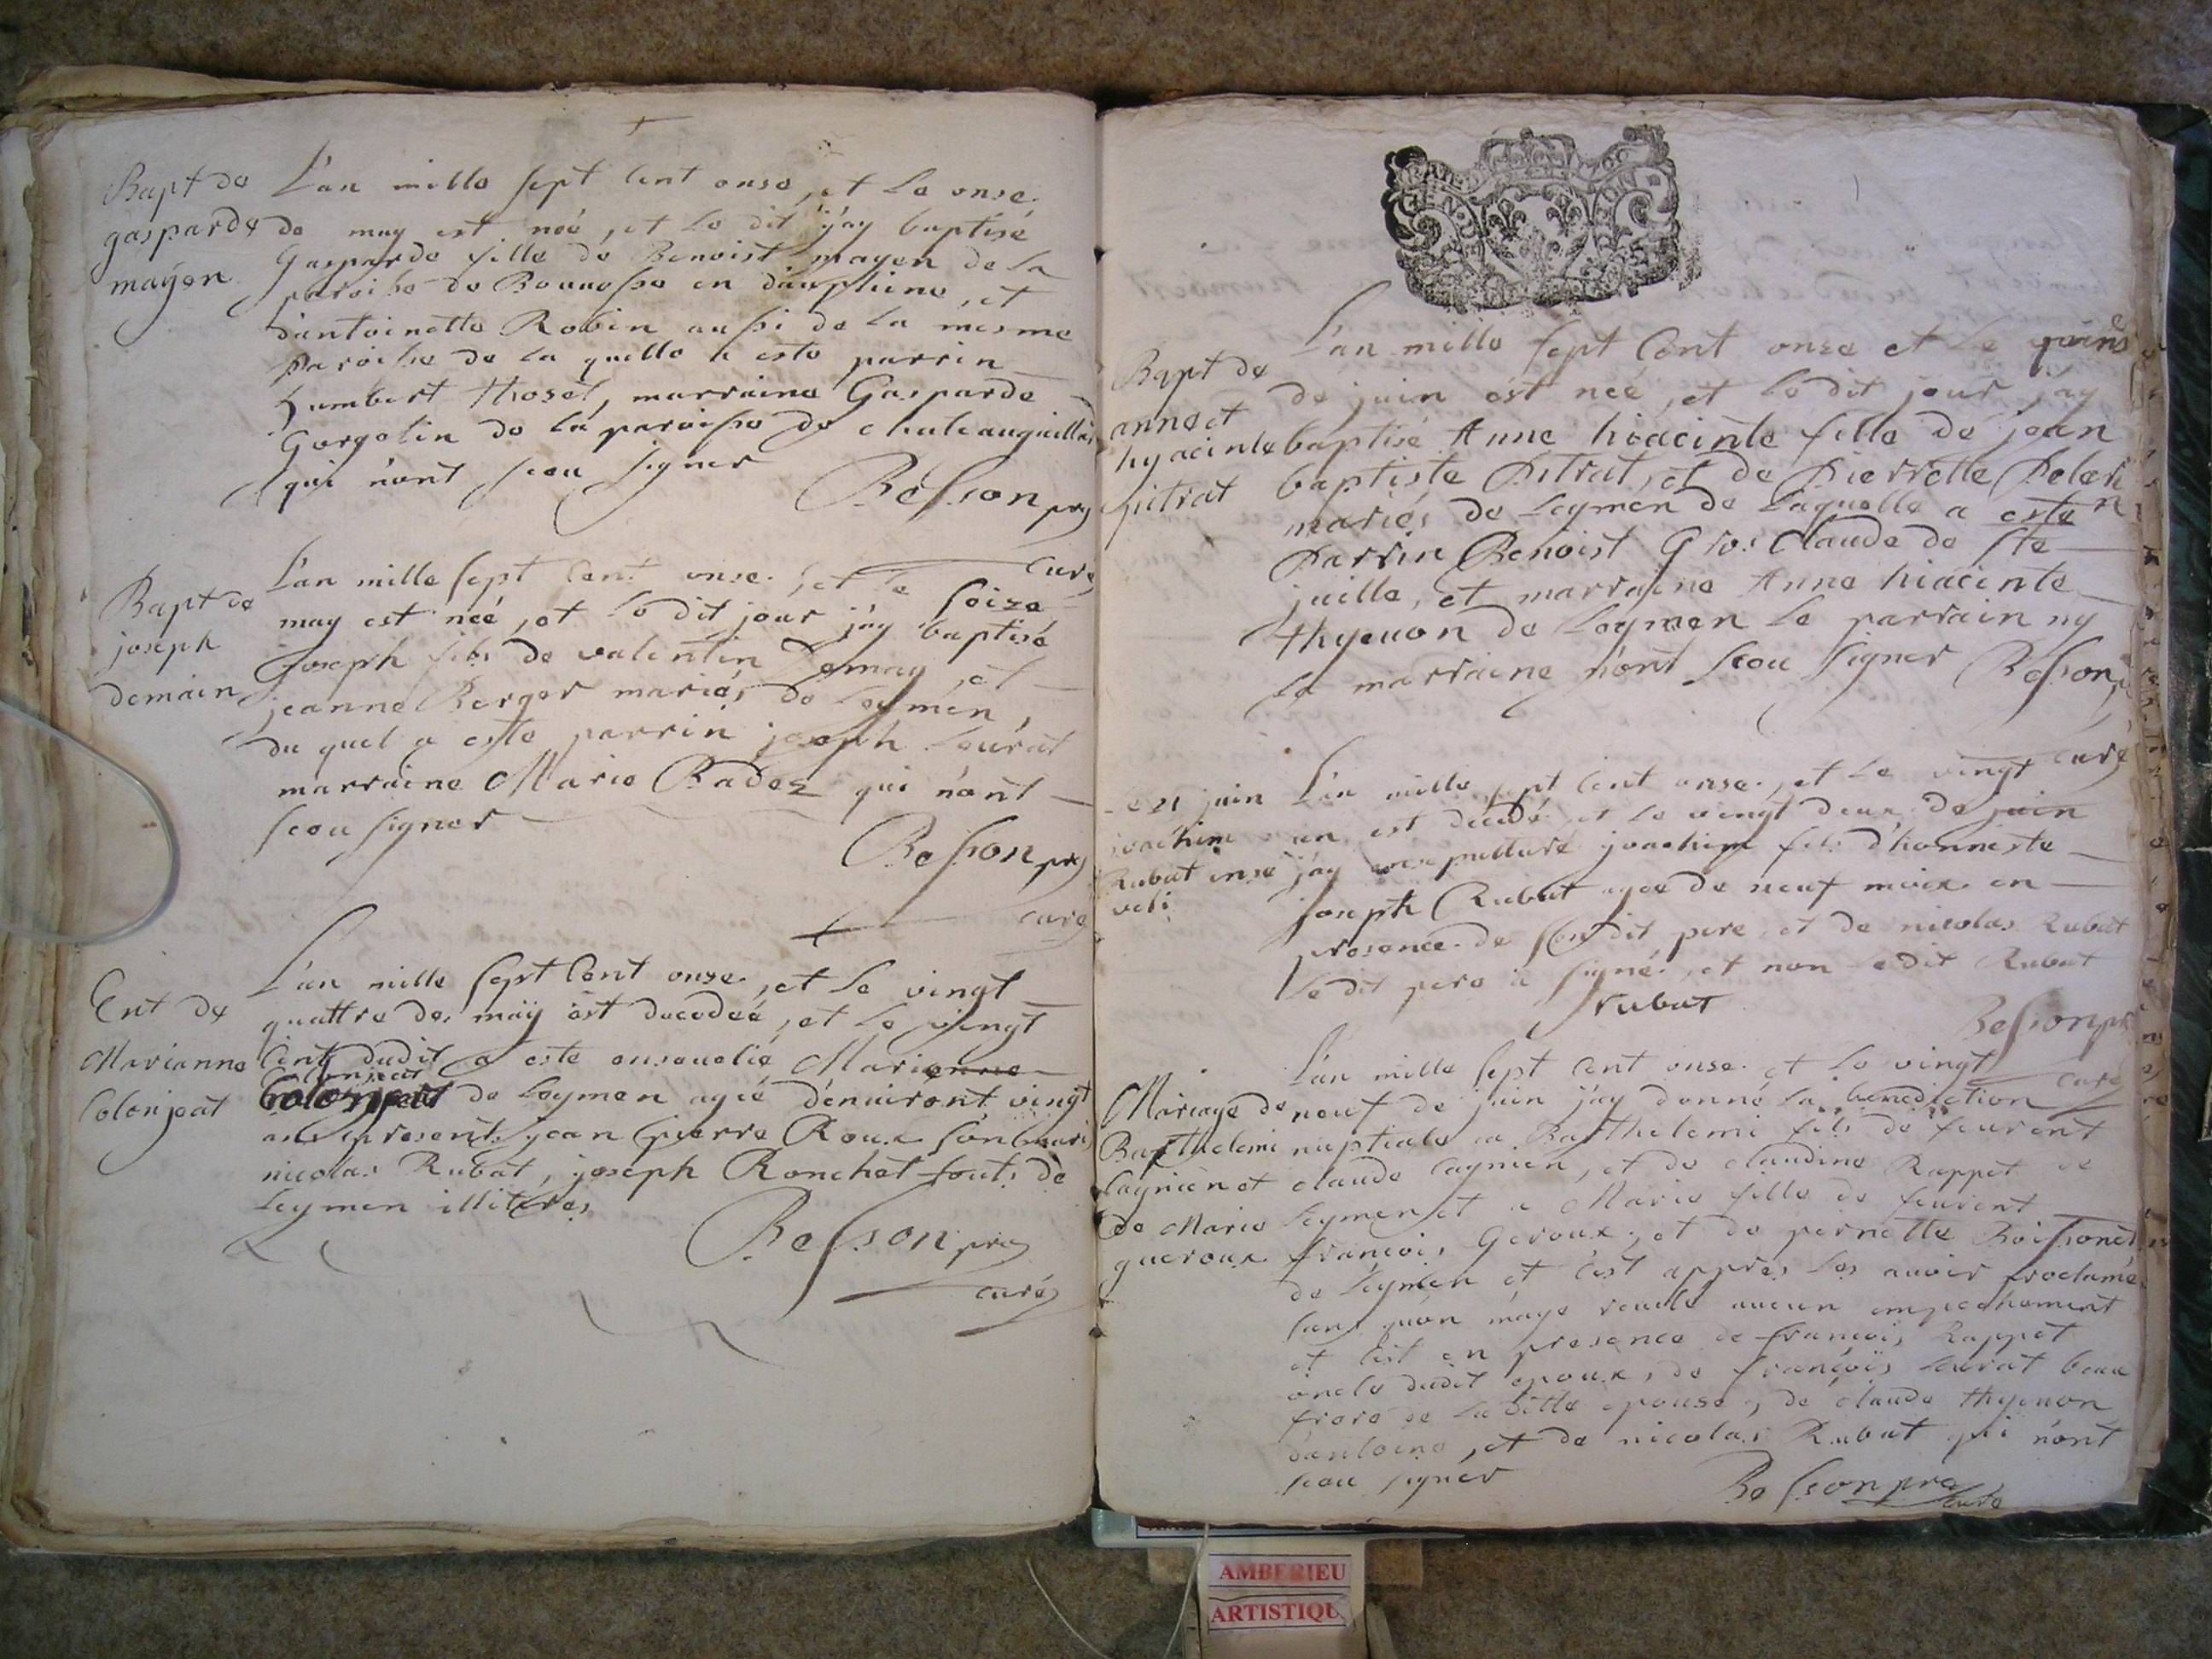 Bapt de
gasparde
mayen
L'an mille sept cent onse, et le onse
de may est néé, et le dit j'ay baptisé
Gasparde fille de Benoist mayen de la
paroisse de en dauphine, et
d'antoinette Robin aussi de la mesme
paroisse de la quelle a esté parrin
humbert thoset, marraine Gasparde
Gorgolin de la paroisse de
qui n'ont sceu signer
Besson pre
curé
Bapt de
joseph
demain
L'an mille sept cent onse, et le seize
may est néé, et le dit jour j'ay baptisé
joseph fils de valentin demay, et
jeanne Berger mariés de Leymen,
du quel a esté parrin joseph Leurat
marraine Marie Badez qui n'ont
sceu signer
Besson pre
curé
Ent de
Marianne
Colonjeat
L'an mille sept cent onze, et le vingt
quattre de may est decedéé, et le vingt
cinq dudit a esté ensevelie Marianne
de Leymen agéé d'enuiront vingt
ans present jean pierre Roux son mari
nicolas Rubat, joseph Ronchet touts de
Leymen illiteres
Besson pre
curé
Bapt de
anne et
hyacinte
pitrat
L'an mille sept cent onze et le
de juin est néé, et le dit jour j'ay
baptisé Anne hiacinte fille de jean
baptiste Pitrat, et de Pierrette Peleri
n
mariés de Leymen de laquelle a esté
Parrin Benoist Gros Claude de Ste
juille, et marraine Anne hiacinte
thyeuon de Leymen le parrain ny
la marraine n'ont sceu signer Besson
curé
21 juin
joachim
Rubat ense
veli
L'an mille sept cent onse, et le vingt
un est décédé et le vingt deux de juin
j'ay joachim fils d'honneste
joseph Rubat agée de neuf moix en
presence de son dit pere, et de nicolas Rubat
le dit pere a signé, et non le dit Rubat
rubat
Besson pre
curé
Mariage de
Barthelemi
Cagnien et
de Marie
gueroux
L'an mille sept cent onse et le vingt
neuf de juin j'ay donné la benediction
nuptiale a Barthelemi fils de feurent
claude Cagnien, et de claudine Rappet de
Leymen et a Marie fille de feurent
françois Geroux, et de pernette Boissonet
de Leymen et c'est appres les avoir proclamé
sans qu'on m'aye reuelé aucun empechement
et c'est en presence de françois Rappet
oncle dudit epoux, de françois Leurat beau
frere de laditte epouse, de claude thyeuon
d'antoine, et de nicolas Rubat qui n'ont
sceu signer
Besson pre
curé
AMBERIEU
ARTISTIQU